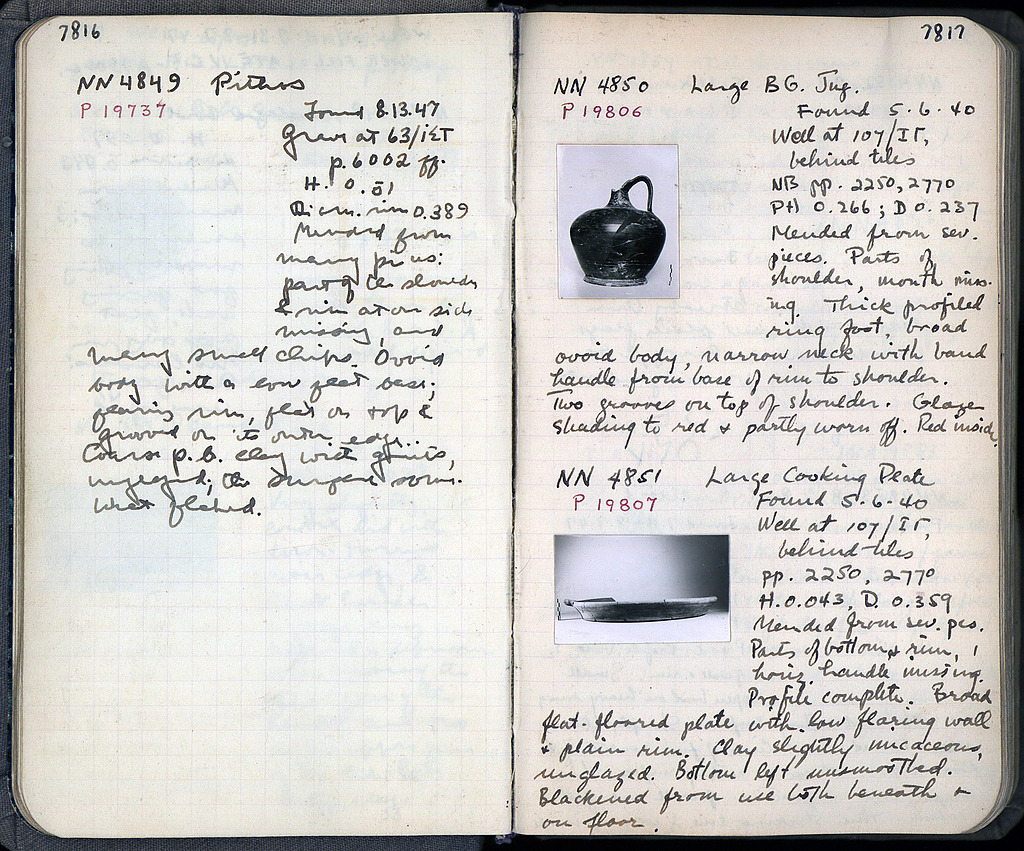 7816
NN 4849 Pithos
P 19737
Found 8.13.47
Grave at 63/ΙΣΤ
p. 6002 ff.
H. 0.51
Diam. rim 0.389
Mended from
many pieces:
part of the shoulder
& rim at one side
missing, and
many small chips. Ovoid
body with a low flat base;
flaring rim, flat on top &
grooved on its outer edge.
Coarse p.b. clay with grits,
unglazed; the surface
7817
NN 4850 Large BG. Jug.
P 19806
Found 5-6-40
Well at 107/ΙΓ,
behind tiles
NB pp. 2250, 2770
PH 0.266; D 0.237
Mended from sev.
pieces. Parts of
shoulder, mouth miss-
ing. Thick profiled
ring foot, broad
ovoid body, narrow neck with band
handle from base of rim to shoulder.
Two grooves on top of shoulder. Glaze
shading to red & partly worn off. Red inside.
NN 4851 Large Cooking Plate
P 19807
Found 5-6-40
Well at 107/ΙΓ,
behind tiles
pp. 2250, 2770
H. 0.043, D. 0.359
Mended from sev. pcs.
Parts of bottom & rim, 1
horiz. handle missing.
Profile complete. Broad
flat-floored plate with low flaring wall
& plain rim. Clay slightly micaceous,
unglazed. Bottom left unsmoothed.
Blackened from use both beneath &
on floor.